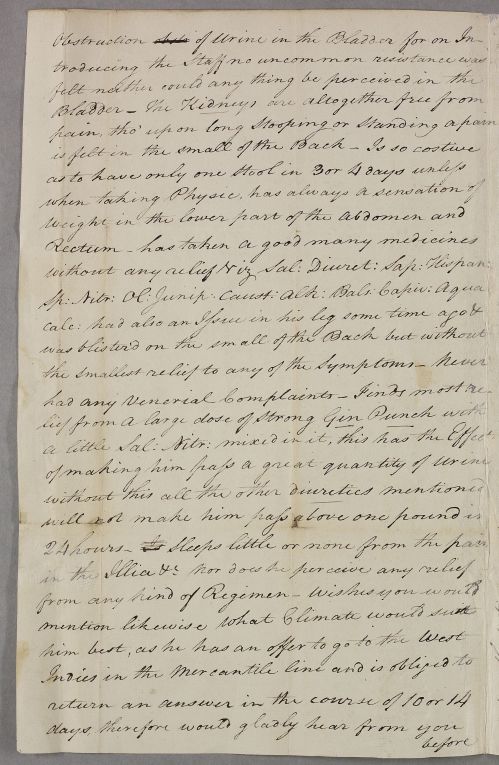 Obstruction of Urine in the Bladder for on In-
troducing the Staff no uncommon resistance was
felt neither could any thing be perceived in the
Bladder_ The Kidneys are altogether free from
pain, tho' upon long Stooping or Standing a pain
is felt in the small of the Back_ Is so costive
as to have only one Stool in 3 or 4 days unless
when taking Physic, has always a sensation of
Weight in the lower part of the Abdomen and
Rectum_ has taken a good many medicines
without any relief Viz Sal: Diuret: Sap: Hispan:
Sp: Nitr: Ol: Junip: Caust: Alk: Bals: Capiv: Aqua
Calc: had also an Issue in his leg some time ago &
was blister'd on the small of the Back but without
the smallest relief to any of the Symptoms_ Never
had any Venerial Complaints_ Finds most re-
lief from a large dose of strong Gin Punch with
a little Sal: Nitr: mixed in it, this has the Effect
of making him pass a great quantity of Urine
without this all the other diuretics mentioned
will not make him pass above one pound in
24 hours_ Sleeps little or none from the pain
in the Illica &c. Nor does he perceive any relief
from any kind of Regimen_ Wishes you would
mention likewise what Climate would suit
him best, as he has an offer to go to the West
Indies in the Mercantile line and is obliged to
return an answer in the course of 10 or 14
days, therefore would gladly hear from you
before